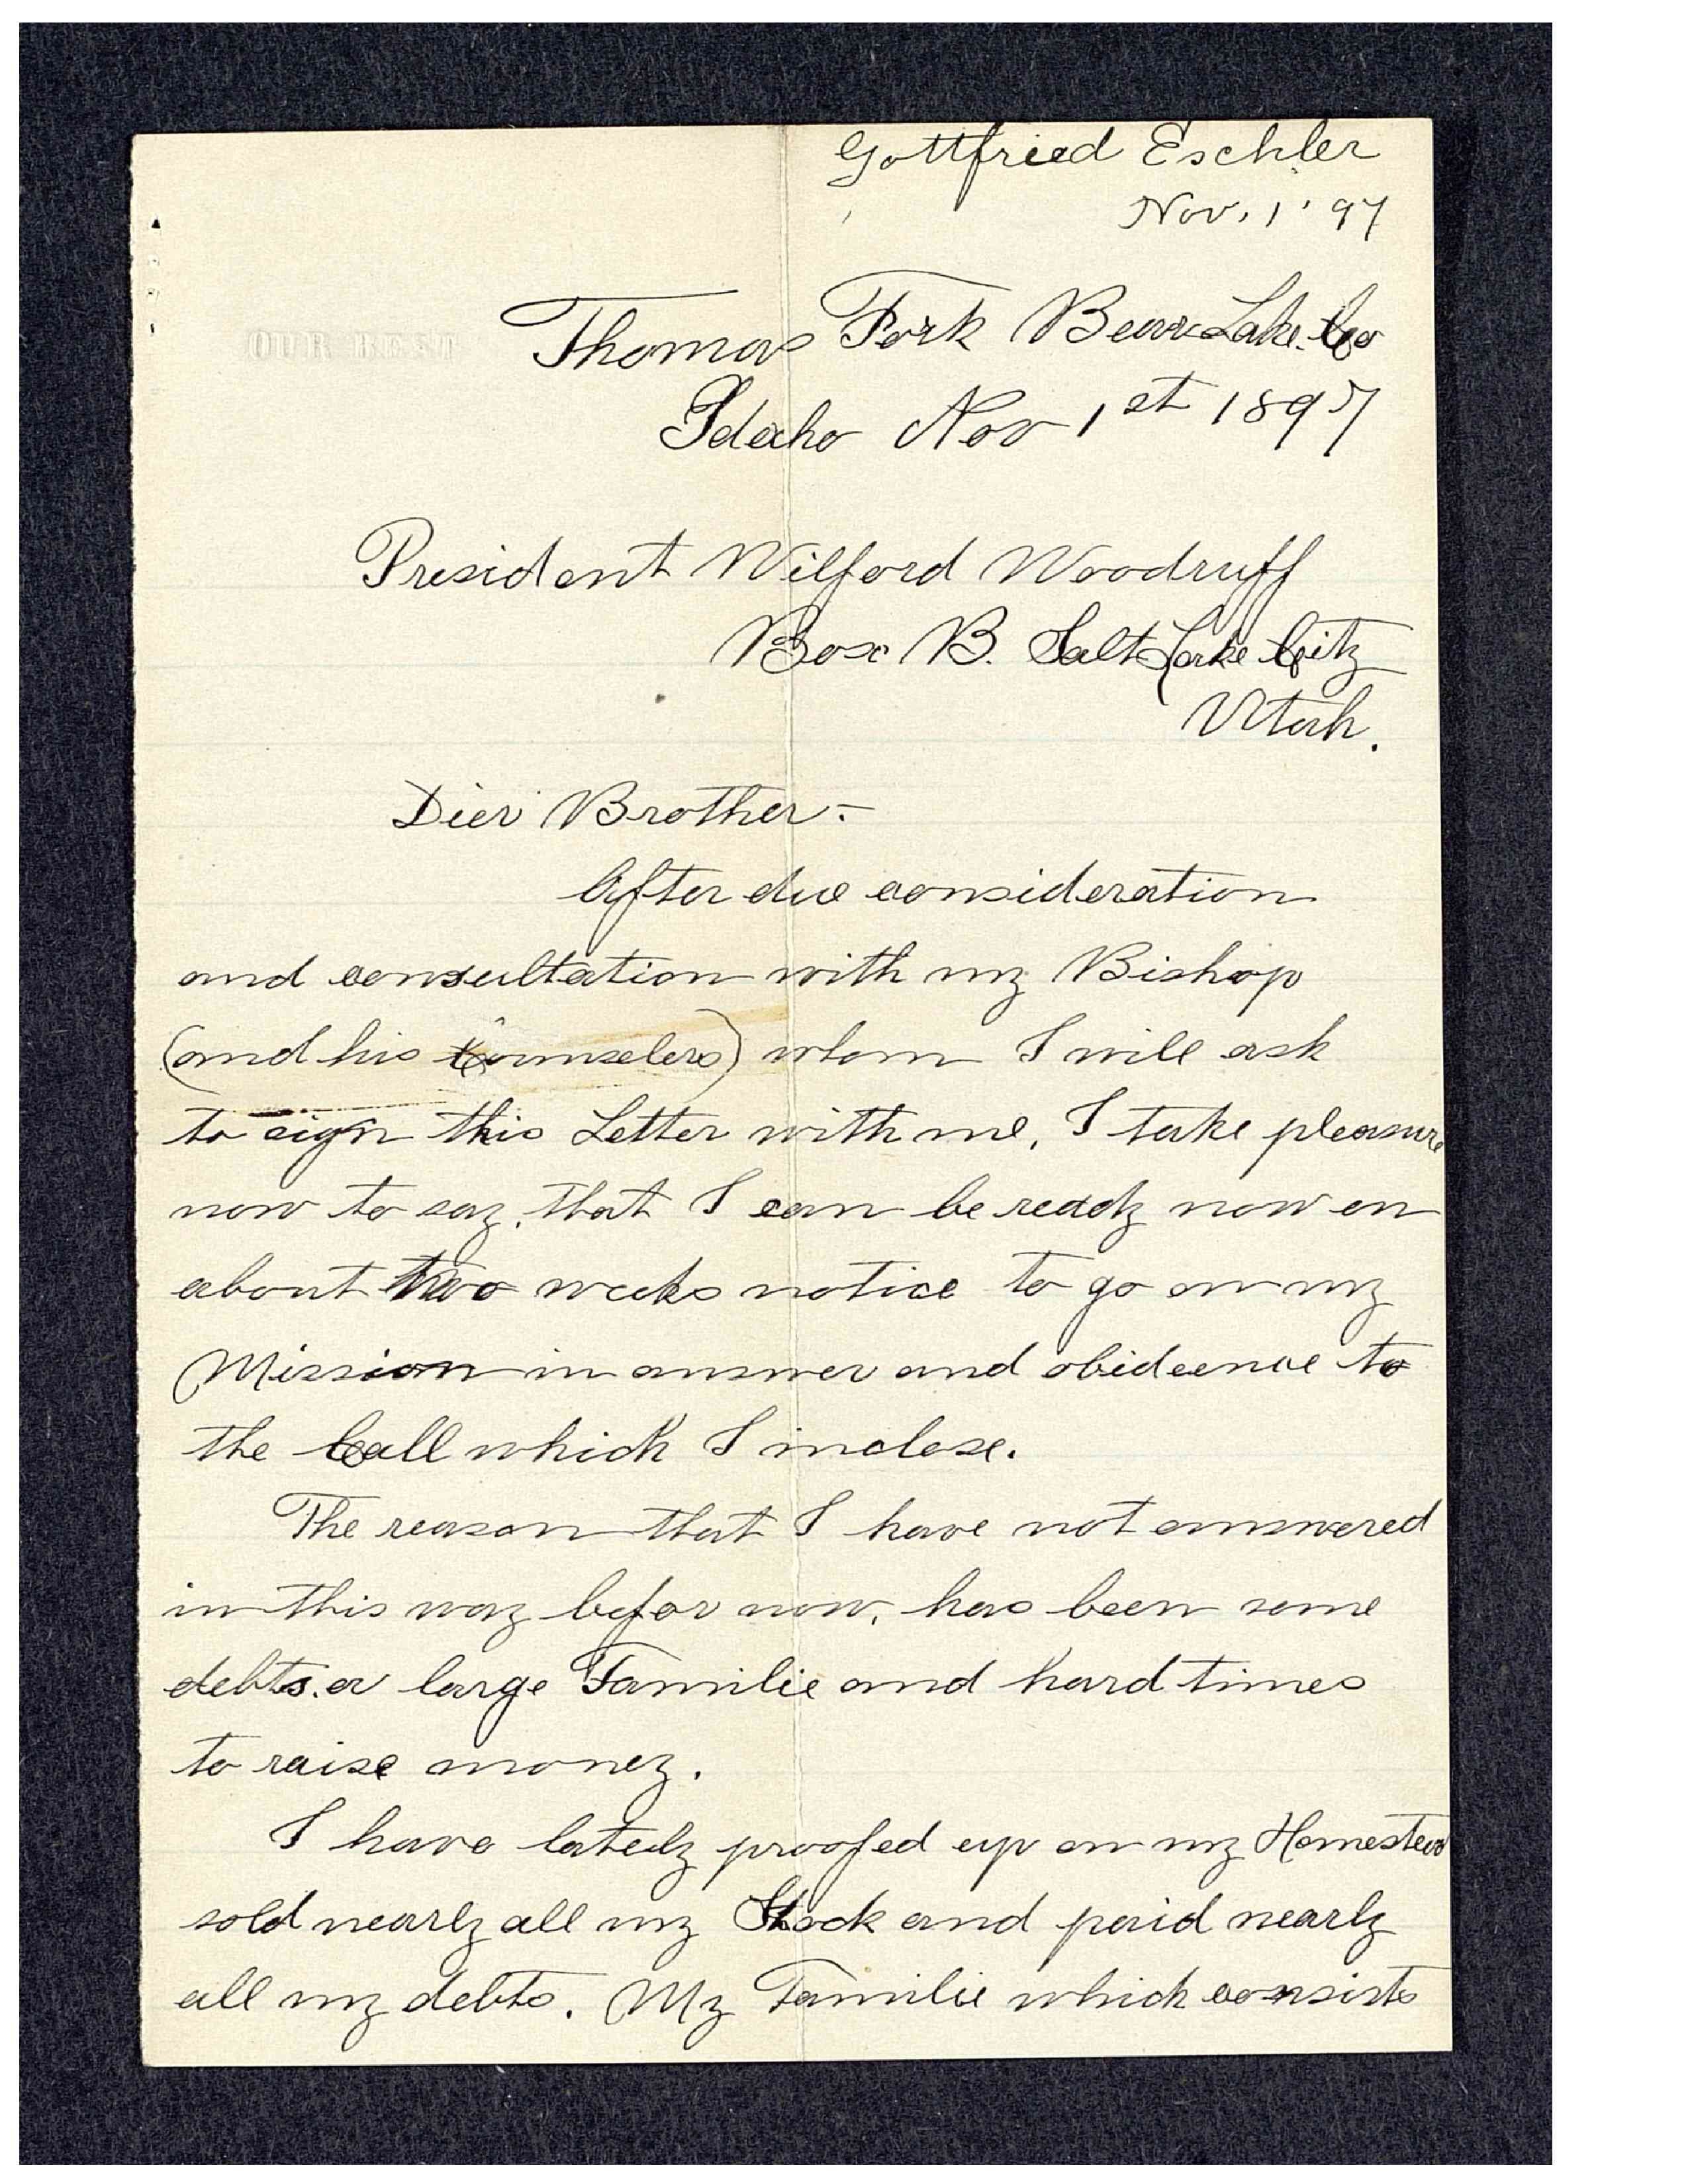 Gottfried Eschler
Nov. 1 '97
OUR BEST
Thomas Fork Bear Lake Co
Idaho Nov 1st 1897
President Wilford Woodruff
Box B. Salt Lake City
Utah.
Dier Brother:-
After due consideration
and consultation with my Bishop
(and his Counselers) whom I will ask
to sign this Letter with me, I take pleasure
now to say, that I can be ready now on
about two weeks notice to go on my
Mission in answer and obideence to
the Call which I inclose.
The reason that I have not answered
in this way befor now, has been some
debts, a large Familie and hard times
to raise money.
I have lately proofed up on my Homestead
sold nearly all my Stock and paid nearly
all my debts. My Familie which consists